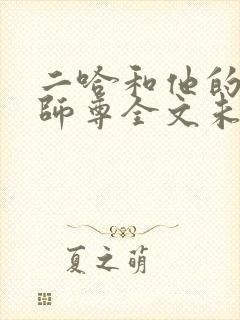 二哈和他的
師尊全文未
夏之萌